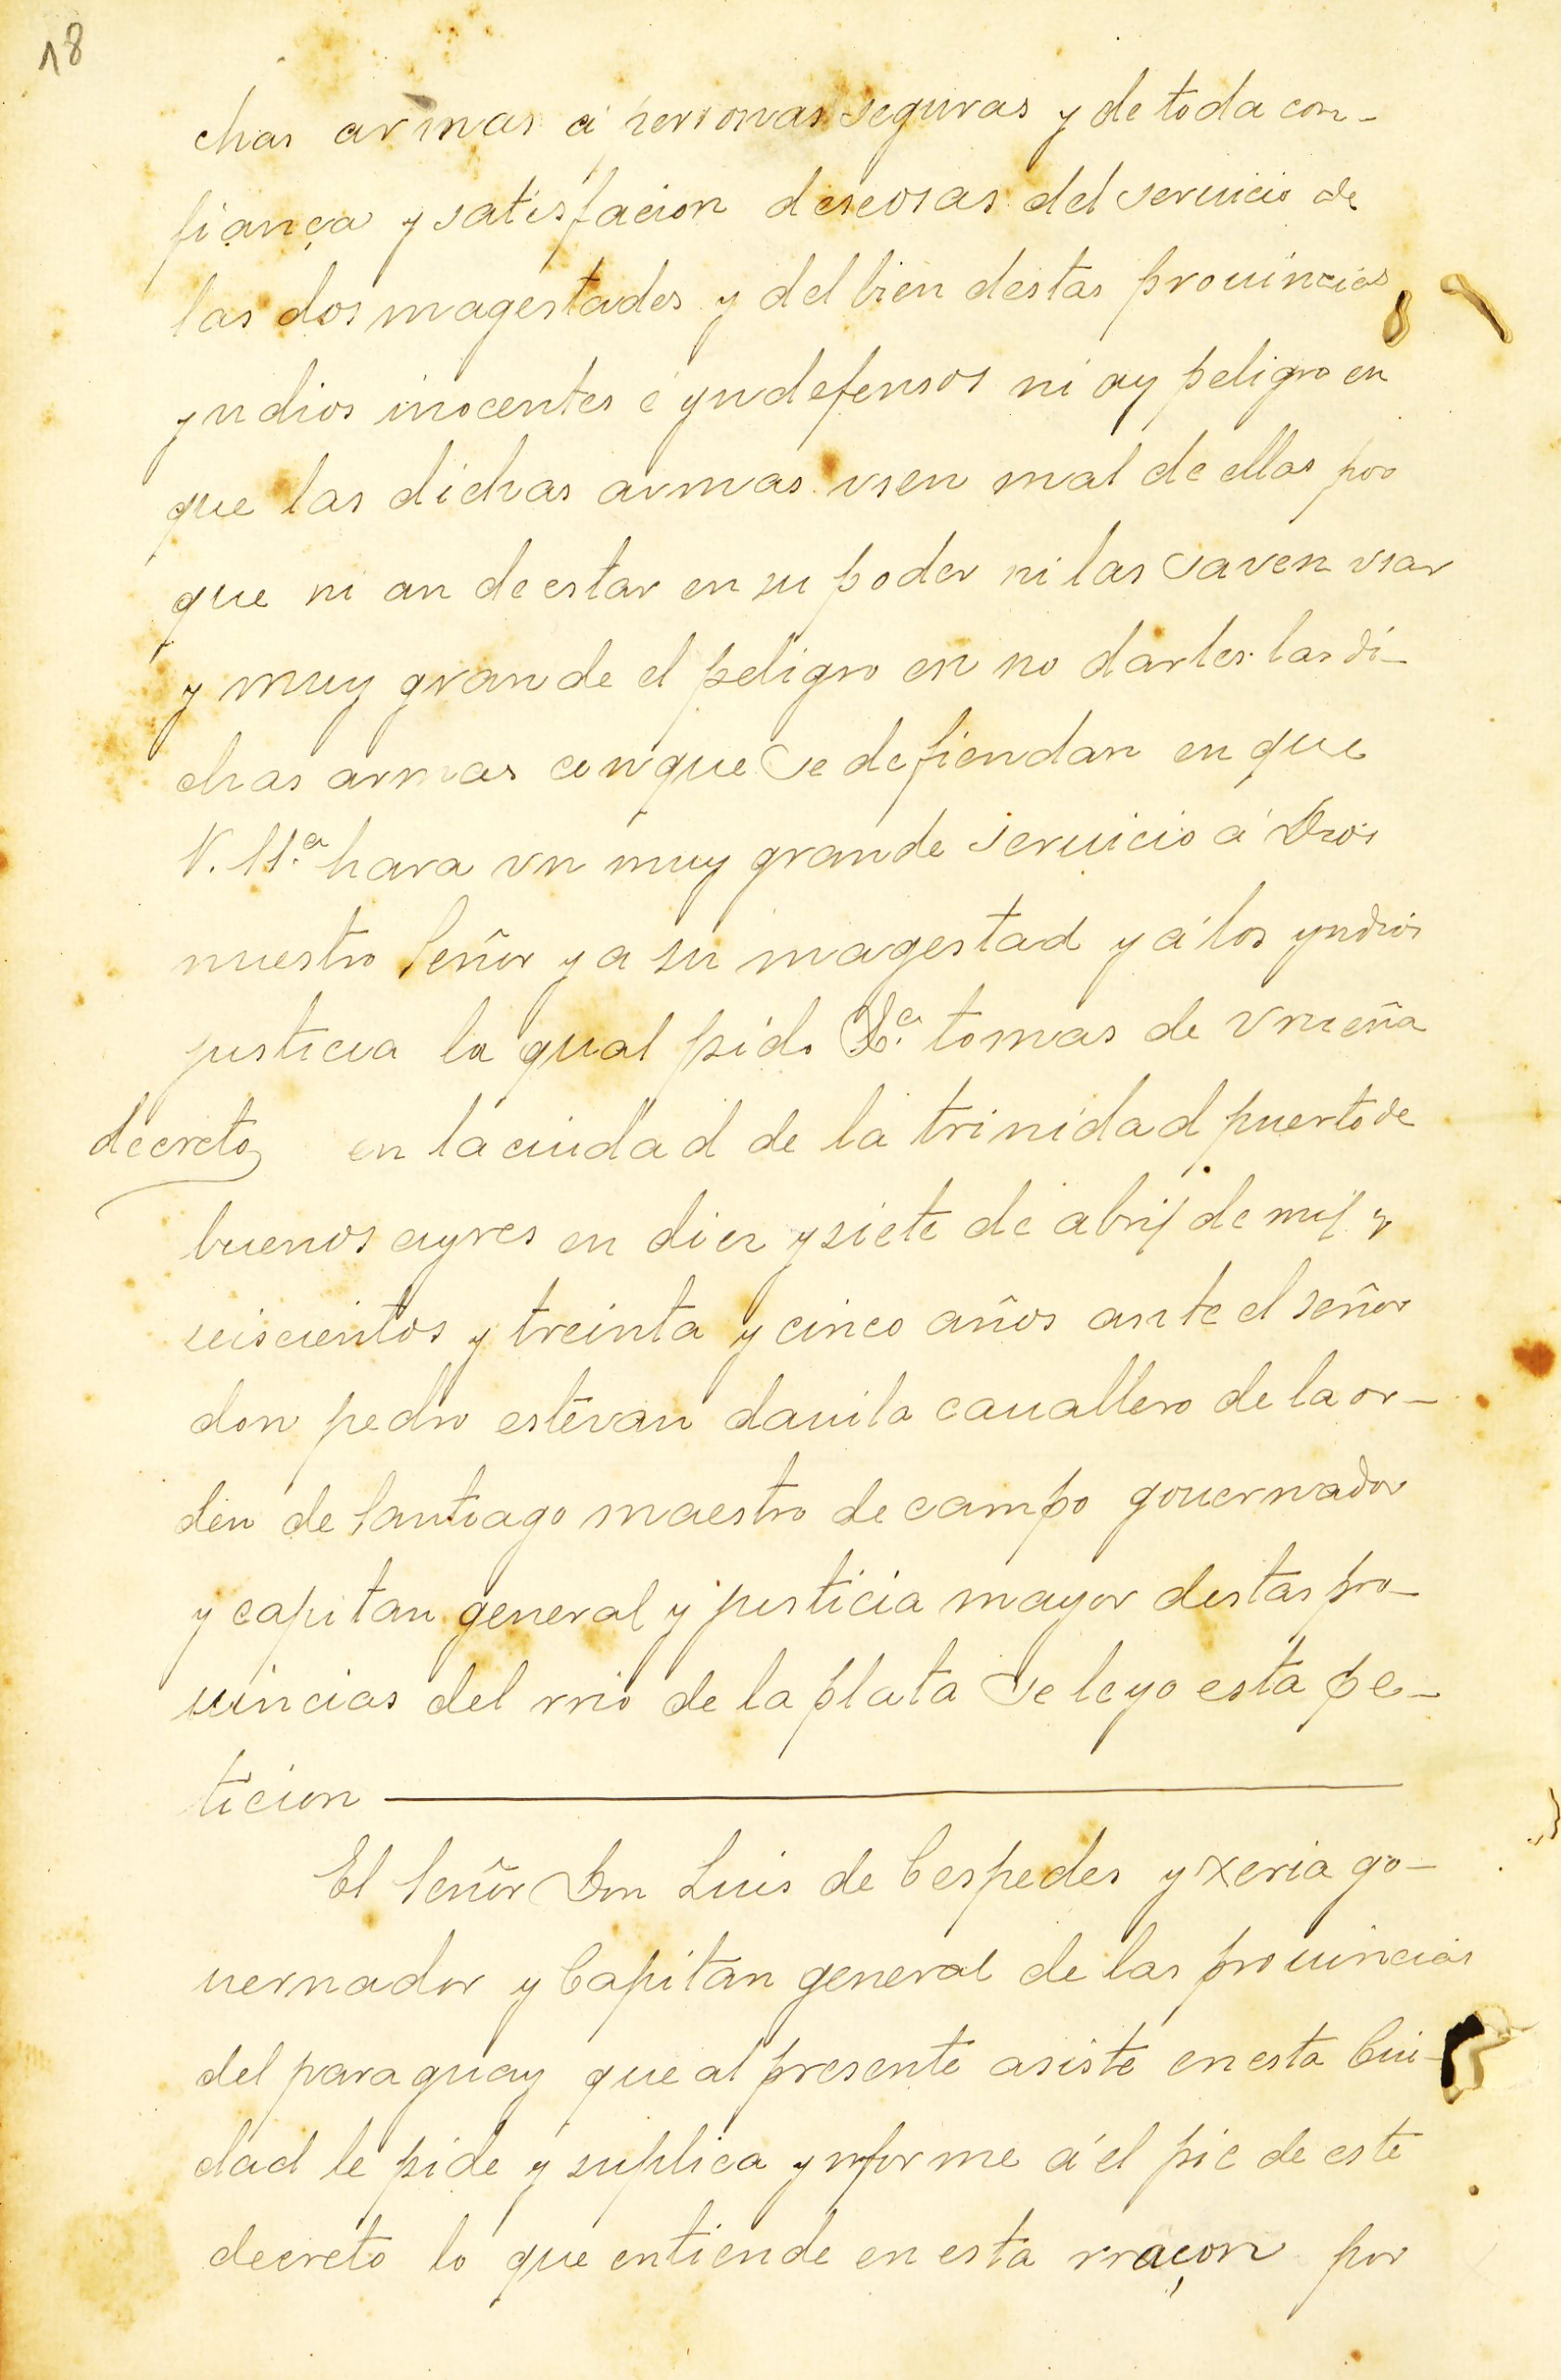 18
chas armas á personas seguras y de toda con-
fiança y satisfacion deseosas del seruicio de
las dos magestades y del bien destas prouincias
yndios inocentes é yndefensos ni ay peligro en
que las dichas armas vsen mal de ellas por
que ni an de estar en su poder ni las saven vsar
y muy grande el peligro en no darles las di-
chas armas con que se defiendan en que
V. Sª. hara vn muy grande seruicio á Dios
nuestro Señor y a su magestad y á los yndios
justicia la qual pido tomas de Vrueña
decreto en la ciudad de la trinidad puerto de
buenos ayres en diez y siete de abril de mil y
seiscientos y treinta y cinco años ante el señor
don pedro estevan dauila cauallero de la or-
den de Santiago maestro de campo gouernador
y capitan general y justicia mayor destas pro-
uincias del rrio de la plata se leyo esta pe-
ticion
El Señor Don Luis de Cespedes y xeria go-
uernador y Capitan general de las prouincias
del paraguay que al presente asiste en esta Ciu-
dad le pide y suplica ynforme á el pie de este
decreto lo que entiende en esta rraçon por